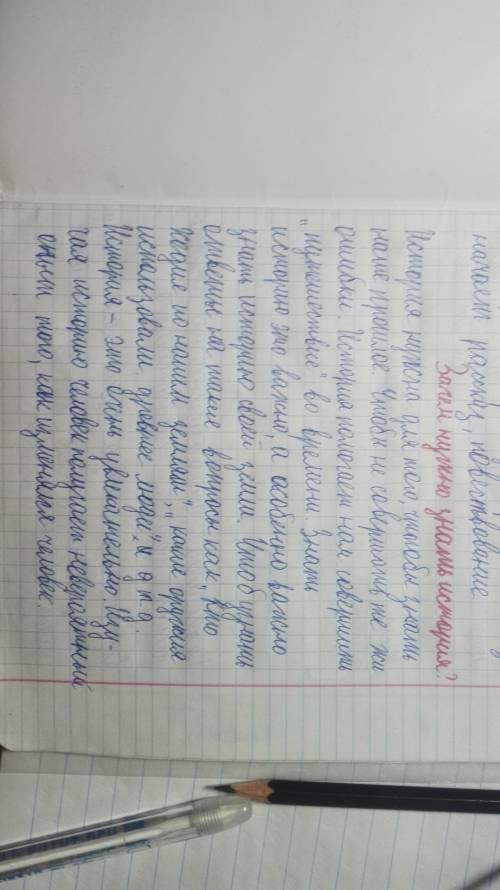 начает разказ, повествование
Зачем нужно знать история?
История нужна для того, чтобы знать
наше прошлое. Чтобы не совершать те же
ошибки. История помогает нам совершить
"путишествие" во времени. Знать
историю это важно, а особенно важно
знать историю свой земли. Чтоб узнать
ответы на такие вопросы как "кто
ходил по нашим землям", "какие оружие
использовали древние люди", и т. д.
История - это очень увлекательно. Изу-
чая историю человек получает невероятный
опыт того, как изменялся челове